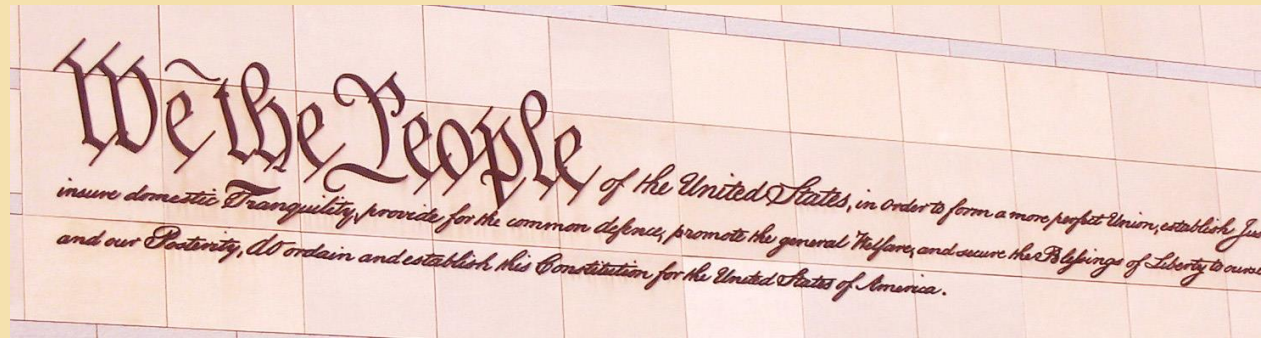 We the People of the United States, in Order to form a more perfect Union, establish Jus
insure domestic Tranquility, provide for the common defence, promote the general Welfare, and secure the Blessings of Liberty to ourse
and our Posterity, do ordain and establish this Constitution for the United States of America.